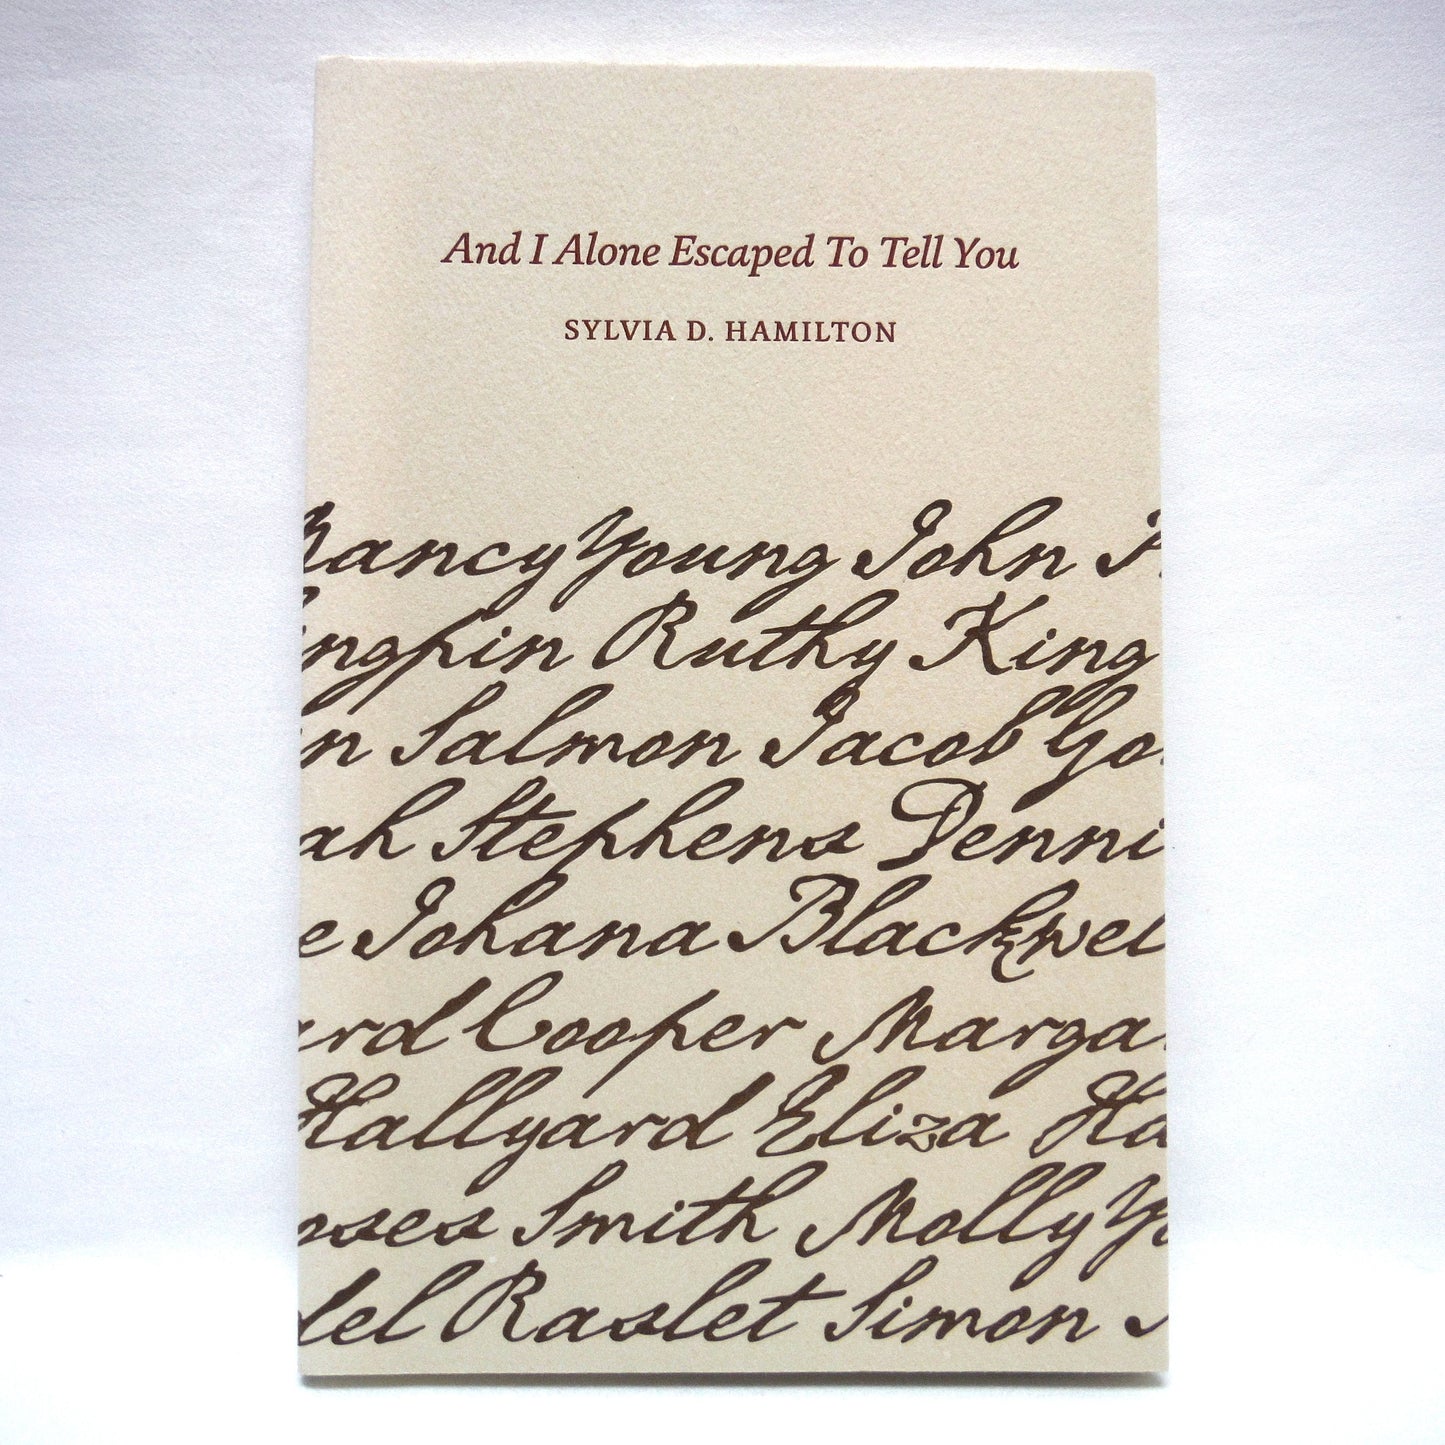 And I Alone Escaped To Tell You
SYLVIA D. HAMILTON
Nancy Young John
ngpin Ruthy King
n Salmon Jacob Go
ah Stephens Denni
e Johana Blackwel
ard Cooper Marga
Hallyard Eliza Ha
oses Smith Molly Yo
del Raslet Simon